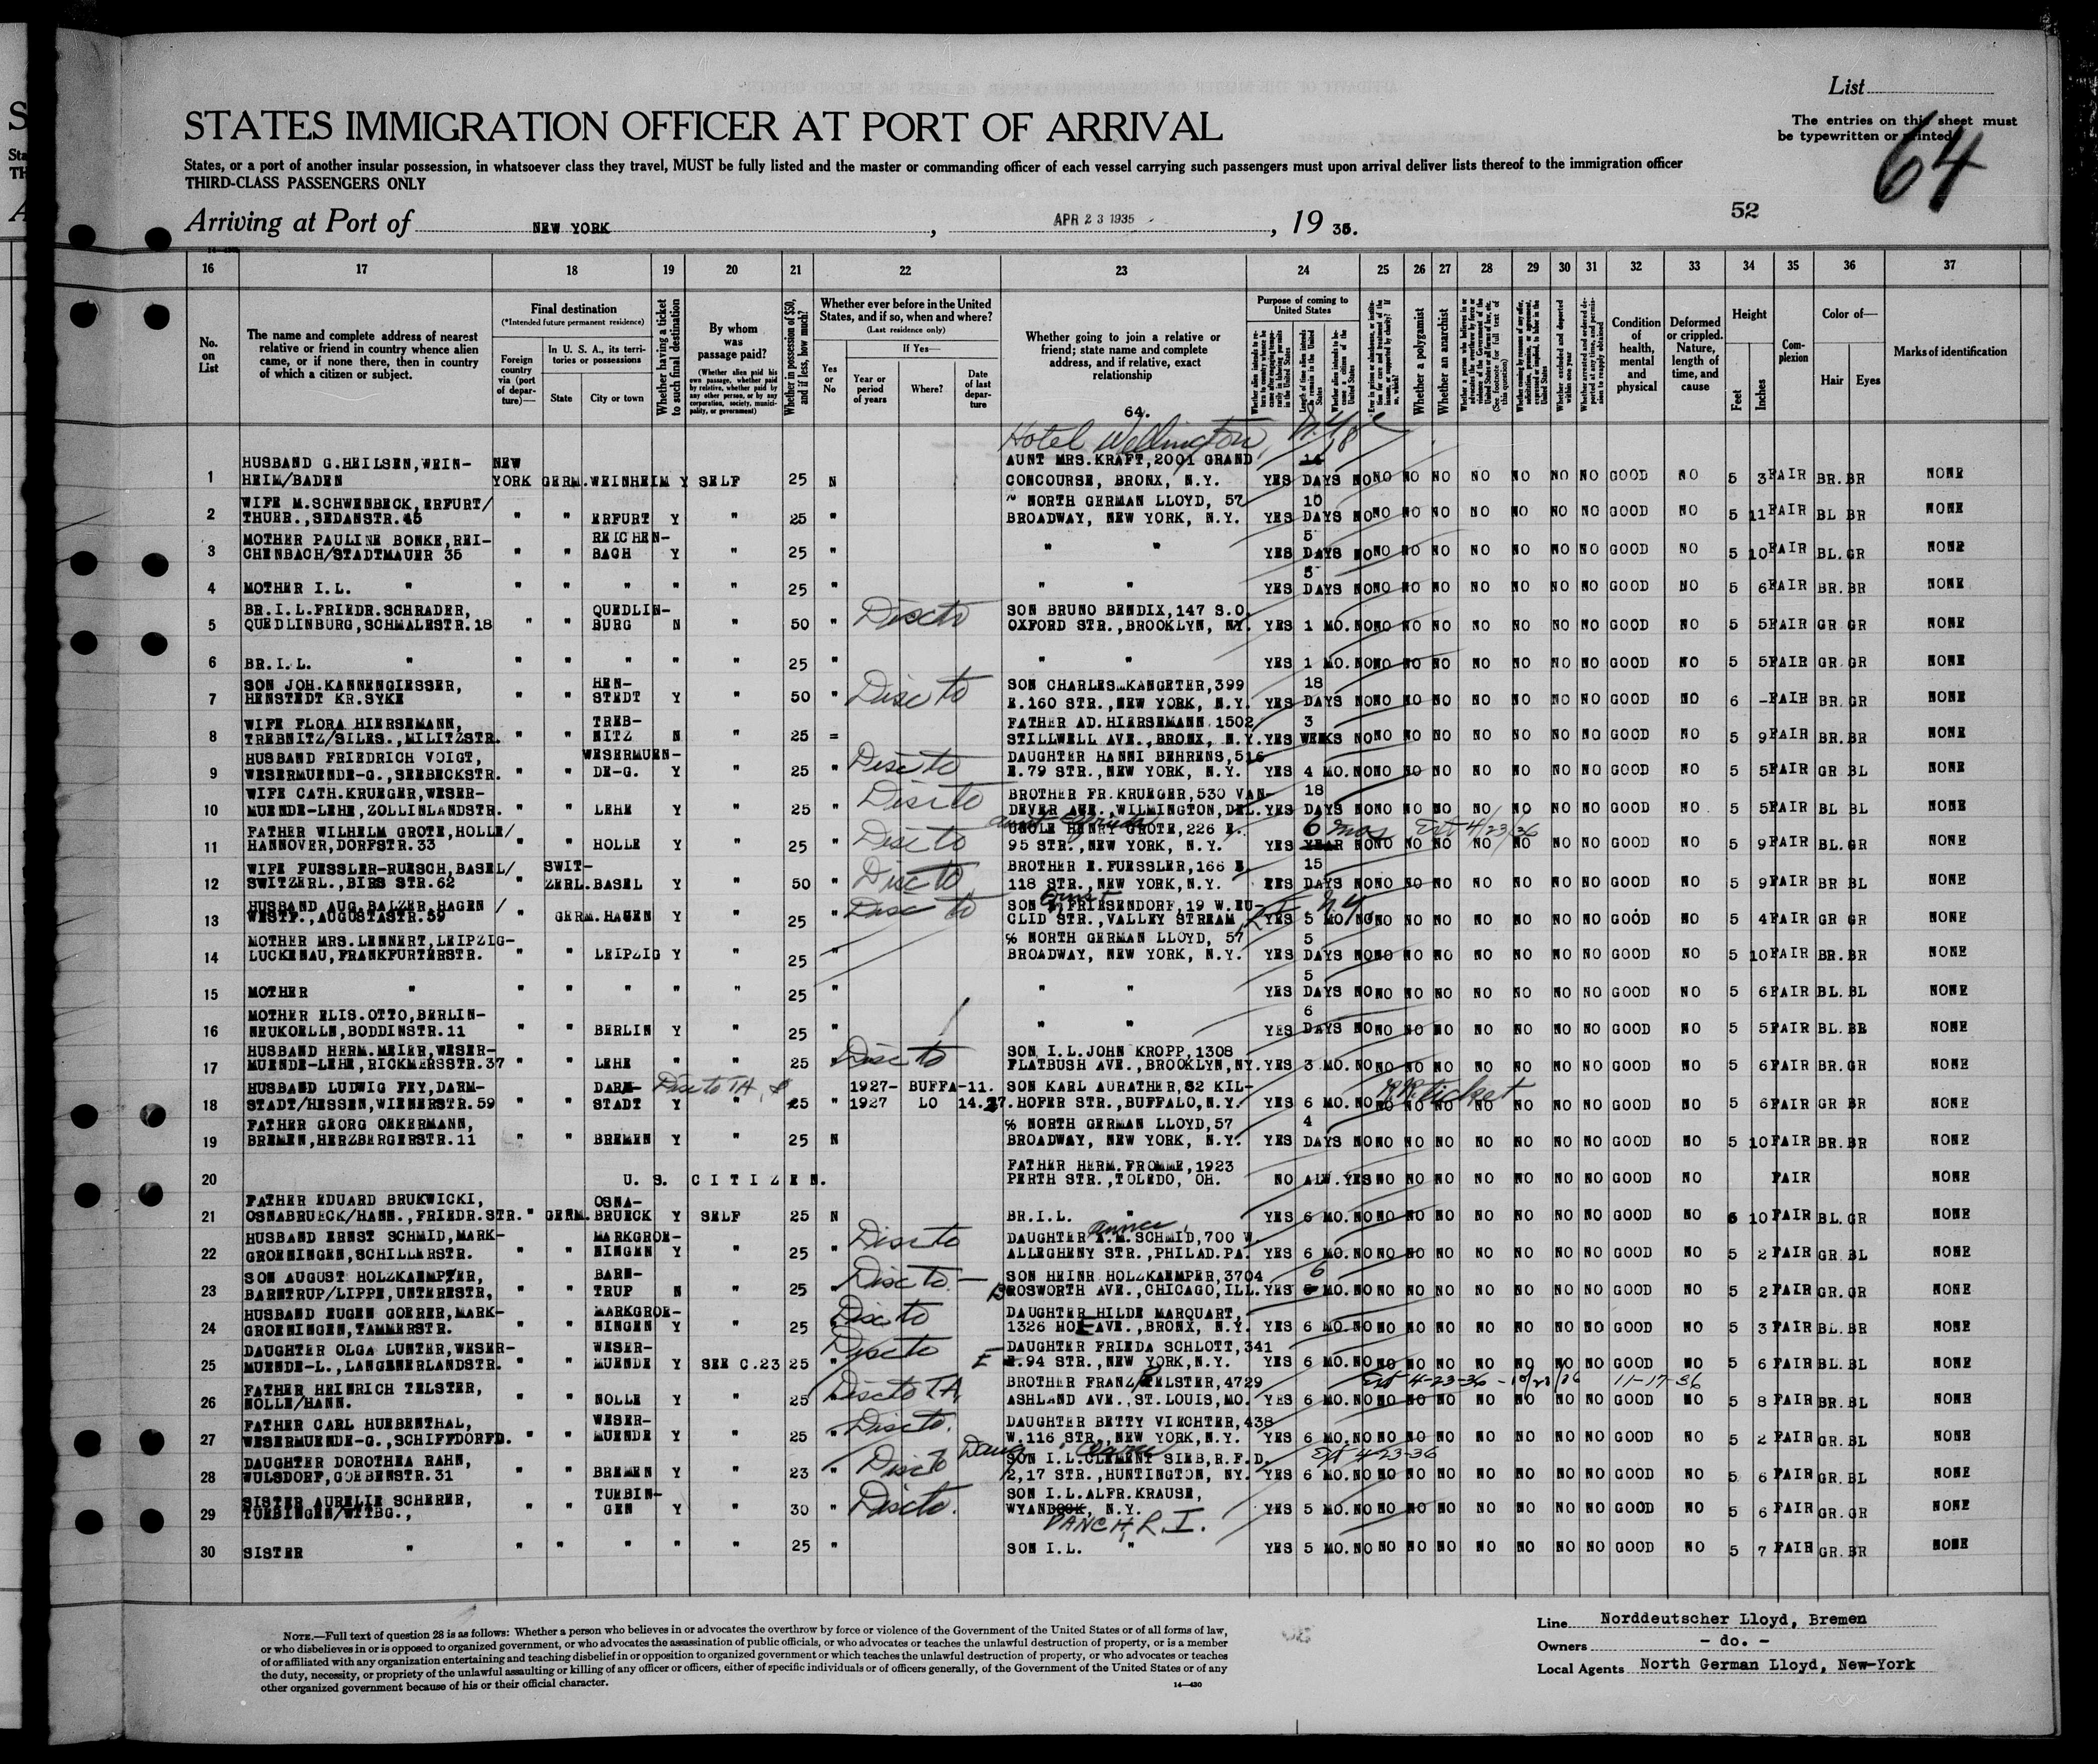 List
STATES IMMIGRATION OFFICER AT PORT OF ARRIVAL
The entries on this sheet must
be typewritten or printed
64
States, or a port of another insular possession, in whatsoever class they travel, MUST be fully listed and the master or commanding officer of each vessel carrying such passengers must upon arrival deliver lists thereof to the immigration officer
THIRD-CLASS PASSENGERS ONLY
52
Arriving at Port of NEW YORK, APR 23 1935, 19 35.
16 17 18 19 20 21 22 23 24 25 26 27 28 29 30 31 32 33 34 35 36 37
No. on List
The name and complete address of nearest relative or friend in country whence alien came, or if none there, then in country of which a citizen or subject.
Final destination
(*Intended future permanent residence)
Foreign country via (port of departure)—
In U. S. A., its territories or possessions
State
City or town
Whether having a ticket to such final destination
By whom was passage paid?
(Whether alien paid his own passage, whether paid by relative, whether paid by any other person, or by any corporation, society, municipality, or government)
Whether in possession of $50, and if less, how much?
Whether ever before in the United States, and if so, when and where?
(Last residence only)
Yes or No
If Yes—
Year or period of years
Where?
Date of last departure
Whether going to join a relative or friend; state name and complete address, and if relative, exact relationship
64.
Purpose of coming to United States
Whether a polygamist
Whether an anarchist
Condition of health, mental and physical
Deformed or crippled. Nature, length of time, and cause
Height
Feet
Inches
Complexion
Color of—
Hair
Eyes
Marks of identification
Hotel Wellington, N.Y.C
18
1 HUSBAND G.HEILSEN,WEIN-HEIM/BADEN NEW YORK GERM. WEINHEIM Y SELF 25 N AUNT MRS.KRAFT,2001 GRAND CONCOURSE, BRONX, N.Y. YES 14 DAYS NO NO NO NO NO NO NO NO GOOD NO 5 3 FAIR BR. BR NONE
2 WIFE M.SCHWENBECK,ERFURT/THUER.,SEDANSTR.45 " " ERFURT Y " 25 " NORTH GERMAN LLOYD, 57 BROADWAY, NEW YORK, N.Y. YES 10 DAYS NO NO NO NO NO NO NO NO GOOD NO 5 11 FAIR BL BR NONE
3 MOTHER PAULINE BONKE,REI-CHENBACH/STADTMAUER 35 " " REICHEN-BACH Y " 25 " " " YES 5 DAYS NO NO NO NO NO NO NO NO GOOD NO 5 10 FAIR BL. GR NONE
4 MOTHER I.L. " " " " " " 25 " " " YES 5 DAYS NO NO NO NO NO NO NO NO GOOD NO 5 6 FAIR BR. BR NONE
5 BR.I.L.FRIEDR.SCHRADER, QUEDLINBURG,SCHMALESTR.18 " " QUEDLIN-BURG N " 50 " Disc to SON BRUNO BENDIX,147 S.O. OXFORD STR.,BROOKLYN, NY. YES 1 MO. NO NO NO NO NO NO NO NO GOOD NO 5 5 FAIR GR GR NONE
6 BR.I.L. " " " " " " 25 " " " YES 1 MO. NO NO NO NO NO NO NO NO GOOD NO 5 5 FAIR GR. GR NONE
7 SON JOH.KANNENGIESSER, HENSTEDT KR.SYKE " " HEN-STEDT Y " 50 " Disc to SON CHARLES KANGETER,399 E.160 STR.,NEW YORK, N.Y. YES 18 DAYS NO NO NO NO NO NO NO NO GOOD NO 6 - FAIR BR. GR NONE
8 WIFE FLORA HIERSEMANN, TREBNITZ/SILES.,MILITZSTR. " " TREB-NITZ N " 25 = FATHER AD.HIERSEMANN 1502 STILLWELL AVE.,BRONX, N.Y. YES 3 WEEKS NO NO NO NO NO NO NO NO GOOD NO 5 9 FAIR BR. BR NONE
9 HUSBAND FRIEDRICH VOIGT, WESERMUENDE-G.,SEEBECKSTR. " " WESERMUEN-DE-G. Y " 25 " Disc to DAUGHTER HANNI BEHRENS,516 E.79 STR.,NEW YORK, N.Y. YES 4 MO. NO NO NO NO NO NO NO NO GOOD NO 5 5 FAIR GR BL NONE
10 WIFE CATH.KRUEGER,WESER-MUENDE-LEHE,ZOLLINLANDSTR. " " LEHE Y " 25 " Disc to BROTHER FR.KRUEGER,530 VAN-DEVER AVE.,WILMINGTON,DEL. YES 18 DAYS NO NO NO NO NO NO NO NO GOOD NO 5 5 FAIR BL BL NONE
11 FATHER WILHELM GROTE,HOLLE/HANNOVER,DORFSTR.33 " " HOLLE Y " 25 " Disc to UNCLE HENRY GROTE,226 E. 95 STR.,NEW YORK, N.Y. YES 6 mos YEAR Ext 4/23/36 NO NO NO NO NO NO NO NO GOOD NO 5 9 FAIR BL. GR NONE
12 WIFE FUESSLER-RUESCH,BASEL/SWITZERL.,BIRS STR.62 " SWIT-ZERL. BASEL Y " 50 " Disc to BROTHER E.FUESSLER,166 E. 118 STR.,NEW YORK,N.Y. YES 15 DAYS NO NO NO NO NO NO NO NO GOOD NO 5 9 FAIR BR BL NONE
13 HUSBAND AUG.BALZER,HAGEN / WESTF.,AUGUSTASTR.59 " GERM. HAGEN Y " 25 " Disc to SON Ernst FRIESENDORF, 19 W.EU-CLID STR.,VALLEY STREAM N.Y YES 5 MO. NO NO NO NO NO NO NO NO GOOD NO 5 4 FAIR GR GR NONE
14 MOTHER MRS.LENNERT,LEIPZIG-LUCKENAU,FRANKFURTERSTR. " " LEIPZIG Y " 25 " % NORTH GERMAN LLOYD, 57 BROADWAY, NEW YORK, N.Y. YES 5 DAYS NO NO NO NO NO NO NO NO GOOD NO 5 10 FAIR BR. BR NONE
15 MOTHER " " " " " " 25 " " " YES 5 DAYS NO NO NO NO NO NO NO NO GOOD NO 5 6 FAIR BL. BL NONE
16 MOTHER ELIS.OTTO,BERLIN-NEUKOELLN,BODDINSTR.11 " " BERLIN Y " 25 " " " YES 6 DAYS NO NO NO NO NO NO NO NO GOOD NO 5 5 FAIR BL. BR NONE
17 HUSBAND HERM.MEIER,WESER-MUENDE-LEHE,RICKMERSSTR.37 " " LEHE " " 25 " Disc to SON I.L.JOHN KROPP,1308 FLATBUSH AVE.,BROOKLYN,NY. YES 3 MO. NO NO NO NO NO NO NO NO GOOD NO 5 6 FAIR BR. GR NONE
18 HUSBAND LUDWIG FEY,DARM-STADT/HESSEN,WIENERSTR.59 " " DARM-STADT Y " 25 Disc to TA " 1927-1927 BUFFA-LO 11. 14.27. SON KARL AURATHER,82 KIL-HOFER STR.,BUFFALO,N.Y. YES 6 MO. RR ticket NO NO NO NO NO NO NO NO GOOD NO 5 6 FAIR GR BR NONE
19 FATHER GEORG OEKERMANN, BREMEN,HERZBERGERSTR.11 " " BREMEN Y " 25 N % NORTH GERMAN LLOYD,57 BROADWAY, NEW YORK, N.Y. YES 4 DAYS NO NO NO NO NO NO NO NO GOOD NO 5 10 FAIR BR. BR NONE
20 U. S. CITIZEN. FATHER HERM.FROMME,1923 PERTH STR.,TOLEDO, OH. NO ALW. YES NO NO NO NO NO NO NO GOOD NO FAIR NONE
21 FATHER EDUARD BRUKWICKI, OSNABRUECK/HANN.,FRIEDR.STR. " GERM. OSNA-BRUECK Y SELF 25 N BR.I.L. " YES 6 MO. NO NO NO NO NO NO NO NO GOOD NO 6 10 FAIR BL. GR NONE
22 HUSBAND ERNST SCHMID,MARK-GROENINGEN,SCHILLERSTR. " " MARKGROE-NINGEN Y " 25 " Disc to DAUGHTER A.M.SCHMID,700 W. ALLEGHENY STR.,PHILAD.PA. YES 6 MO. NO NO NO NO NO NO NO NO GOOD NO 5 2 FAIR GR. BL NONE
23 SON AUGUST HOLZKAEMPFER, BARNTRUP/LIPPE,UNTERESTR, " " BARN-TRUP N " 25 " Disc to. SON HEINR HOLZKAEMPER,3704 BROSWORTH AVE.,CHICAGO,ILL. YES 6 MO. NO NO NO NO NO NO NO NO GOOD NO 5 2 FAIR GR. GR NONE
24 HUSBAND EUGEN GOERER,MARK-GROENINGEN,TAMMERSTR. " " MARKGROE-NINGEN Y " 25 " Disc to DAUGHTER HILDE MARQUART, 1326 HOE AVE.,BRONX, N.Y. YES 6 MO. NO NO NO NO NO NO NO NO GOOD NO 5 3 FAIR BL. BR NONE
25 DAUGHTER OLGA LUNTER,WESER-MUENDE-L.,LANGENERLANDSTR. " " WESER-MUENDE Y SEE C.23 25 " Disc to DAUGHTER FRIEDA SCHLOTT,341 E.94 STR.,NEW YORK,N.Y. YES 6 MO. NO NO NO NO NO NO NO NO GOOD NO 5 6 FAIR BL. BL NONE
26 FATHER HEINRICH TELSTER, NOLLE/HANN. " " NOLLE Y " 25 Disc to TA BROTHER FRANZ FELSTER,4729 ASHLAND AVE.,ST.LOUIS,MO. YES 6 MO. Ext 4-23-36 - 10/23/36 11-17-36 NO NO NO NO NO NO NO NO GOOD NO 5 8 FAIR BR. BL NONE
27 FATHER CARL HUEBENTHAL, WESERMUENDE-G.,SCHIFFDORFD. " " WESER-MUENDE Y " 25 " Disc to. DAUGHTER BETTY VIECHTER,438 W.116 STR.,NEW YORK,N.Y. YES 6 MO. NO NO NO NO NO NO NO NO GOOD NO 5 2 FAIR GR. BL NONE
28 DAUGHTER DOROTHEA RAHN, WULSDORF,GOEBENSTR.31 " " BREMEN Y " 23 " Disc to Daug SON I.L.CLEMENT SIEB,R.F.D. 2,17 STR.,HUNTINGTON, NY. YES 6 MO. Ext 4-23-36 NO NO NO NO NO NO NO NO GOOD NO 5 6 FAIR GR. BL NONE
29 SISTER AURELIE SCHERER, TUEBINGEN/WTTBG., " " TUEBIN-GEN Y " 30 " Disc to. SON I.L.ALFR.KRAUSE, WYANDOCK, N.Y. DANCH, R.I. YES 5 MO. NO NO NO NO NO NO NO NO GOOD NO 5 6 FAIR GR. GR NONE
30 SISTER " " " " " " 25 " SON I.L. " YES 5 MO. NO NO NO NO NO NO NO NO GOOD NO 5 7 FAIR GR. BR NONE
NOTE.—Full text of question 28 is as follows: Whether a person who believes in or advocates the overthrow by force or violence of the Government of the United States or of all forms of law,
or who disbelieves in or is opposed to organized government, or who advocates the assassination of public officials, or who advocates or teaches the unlawful destruction of property, or is a member
of or affiliated with any organization entertaining and teaching disbelief in or opposition to organized government or which teaches the unlawful destruction of property, or who advocates or teaches
the duty, necessity, or propriety of the unlawful assaulting or killing of any officer or officers, either of specific individuals or of officers generally, of the Government of the United States or of any
other organized government because of his or their official character.
14—430
Line Norddeutscher Lloyd, Bremen
Owners - do. -
Local Agents North German Lloyd, New-York